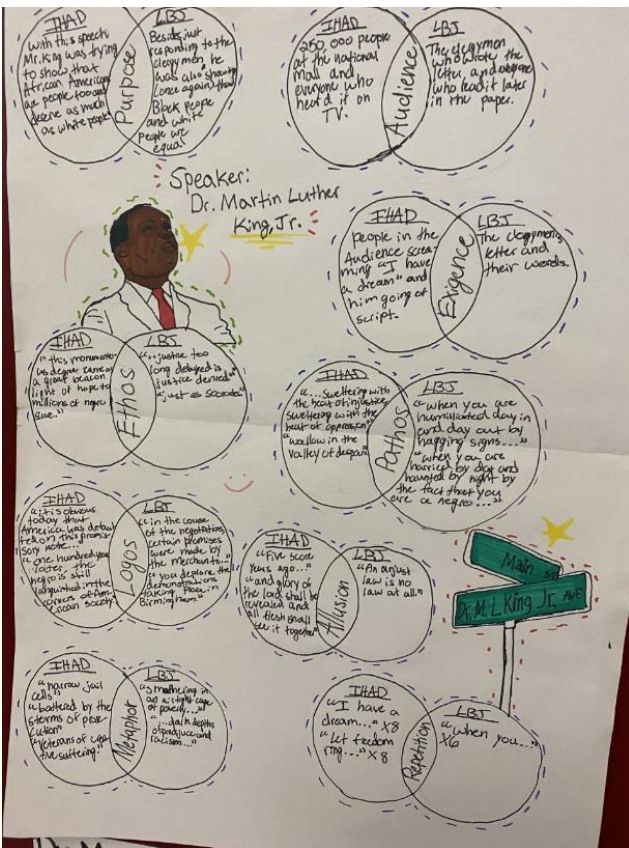 IHAD
With this speech
Mr. King was trying
to show that
African Americans
are people too and
deserve as much
as white people
Purpose
LBJ
Besides just
responding to the
clergymen he
was also showing
once again that
Black People
and white
People are
equal
IHAD
250,000 people
at the national
mall and
everyone who
heard it on
TV.
Audience
LBJ
The clergymen
who wrote the
letter, and
who read it later
in the paper.
Speaker:
Dr. Martin Luther
King, Jr.
IHAD
People in the
Audience screa-
ming "I have
a dream" and
him going of
script.
Exigence
LBJ
The clergymen's
letter and
their words.
IHAD
"this momentous
decree came as
a great beacon
light of hope to
millions of negro
slave."
Ethos
LBJ
"justice too
long delayed is
justice denied"
"just as Socrates"
IHAD
"...sweltering with
the heat of injustice,
sweltering with the
heat of oppression"
"wallow in the
valley of despair"
Pathos
LBJ
"when you are
humiliated day in
and day out by
nagging signs..."
"when you are
harried by day and
haunted by night by
the fact that you
are a negro..."
IHAD
"it is obvious
today that
America has defaul
ted on this promis-
sory note..."
"one hundred years
later, the
negro is still
languished in the
corners of Am-
erican society."
Logos
LBJ
"in the course
of the negotiations,
certain promises
were made by
the merchants..."
"you deplore the
demonstrations
taking place in
Birmingham."
IHAD
"Five score
years ago..."
"and glory of
the lord shall be
revealed and
all flesh shall
see it together"
Allusion
LBJ
"An unjust
law is no
law at all."
Main St
Dr. M. L King Jr. AVE
IHAD
"narrow jail
cells"
"battered by the
storms of perse-
cution"
"veterans of crea-
tive suffering."
Metaphor
LBJ
"smothering in
an airtight cage
of poverty..."
"...dark depths
of prejudice and
racism..."
IHAD
"I have a
dream..." X8
"Let freedom
ring..." X8
Repetition
LBJ
"when you..."
X6